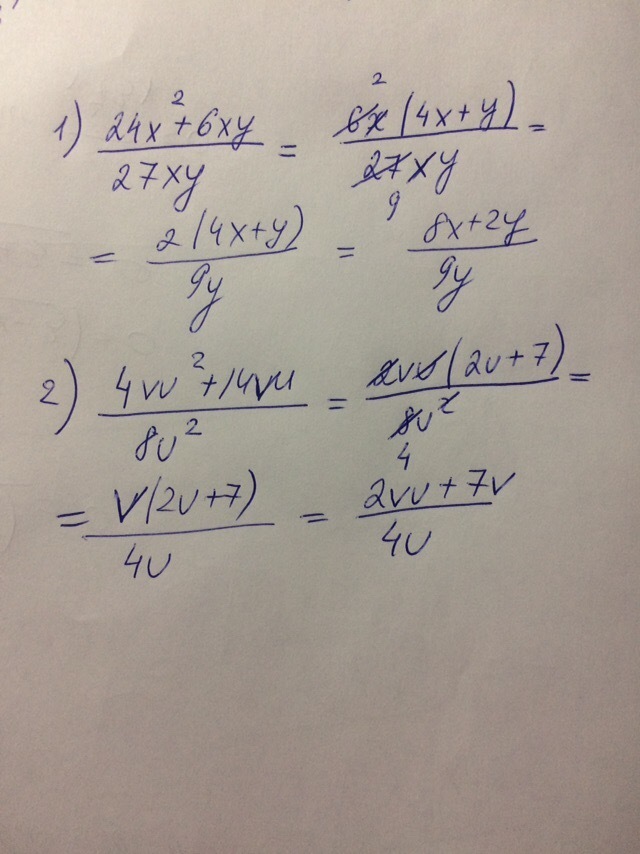 1) (24x² + 6xy)/(27xy) = (6x(4x + y))/(27xy) =
2
9
= (2(4x + y))/(9y) = (8x + 2y)/(9y)
2) (4vu² + 14vu)/(8u²) = (2vu(2u + 7))/(8u²) =
4
= (v(2u + 7))/(4u) = (2vu + 7v)/(4u)